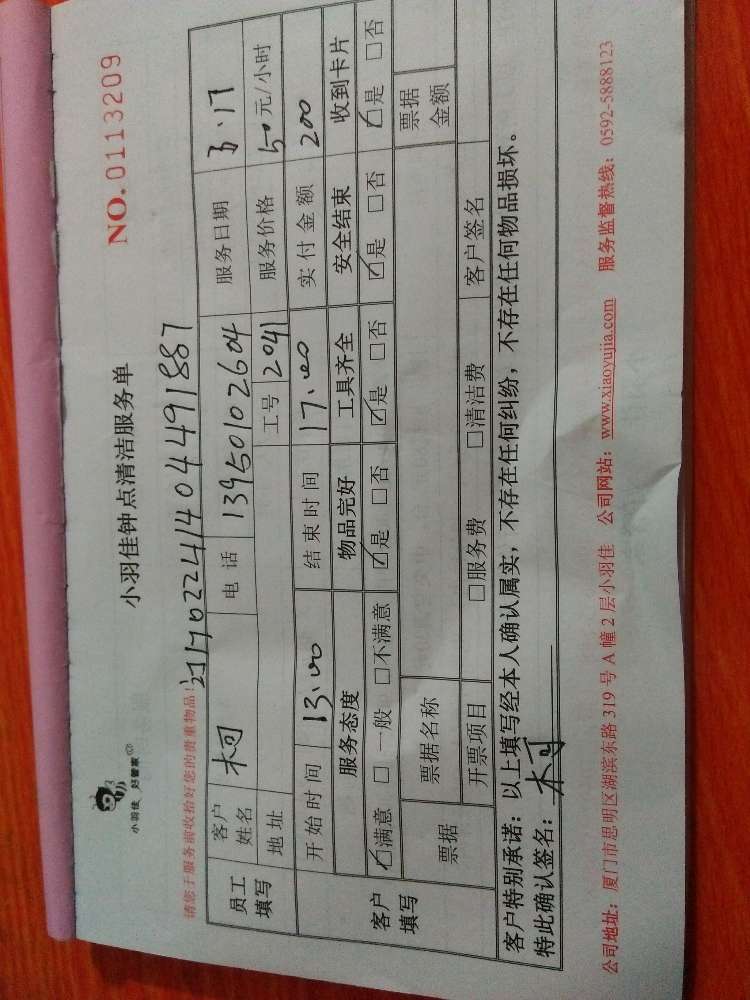 小羽佳 好管家
小羽佳钟点清洁服务单
NO. 0113209
请您于服务前收拾好您的贵重物品!
1702241404491887
员工填写 客户姓名 柯 电话 13950102604 服务日期 3.17
地址 工号 2041 服务价格 50元/小时
开始时间 13:00 结束时间 17:00 实付金额 200
客户填写 服务态度 物品完好 工具齐全 安全结束 收到卡片
☑满意 □一般 □不满意 ☑是 □否 ☑是 □否 ☑是 □否 ☑是 □否
票据 票据名称 票据金额
开票项目 □服务费 □清洁费 客户签名
客户特别承诺:以上填写经本人确认属实,不存在任何纠纷,不存在任何物品损坏。
特此确认签名:柯
公司地址:厦门市思明区湖滨东路 319 号 A 幢 2 层小羽佳 公司网站:www.xiaoyujia.com 服务监督热线:0592-5888123